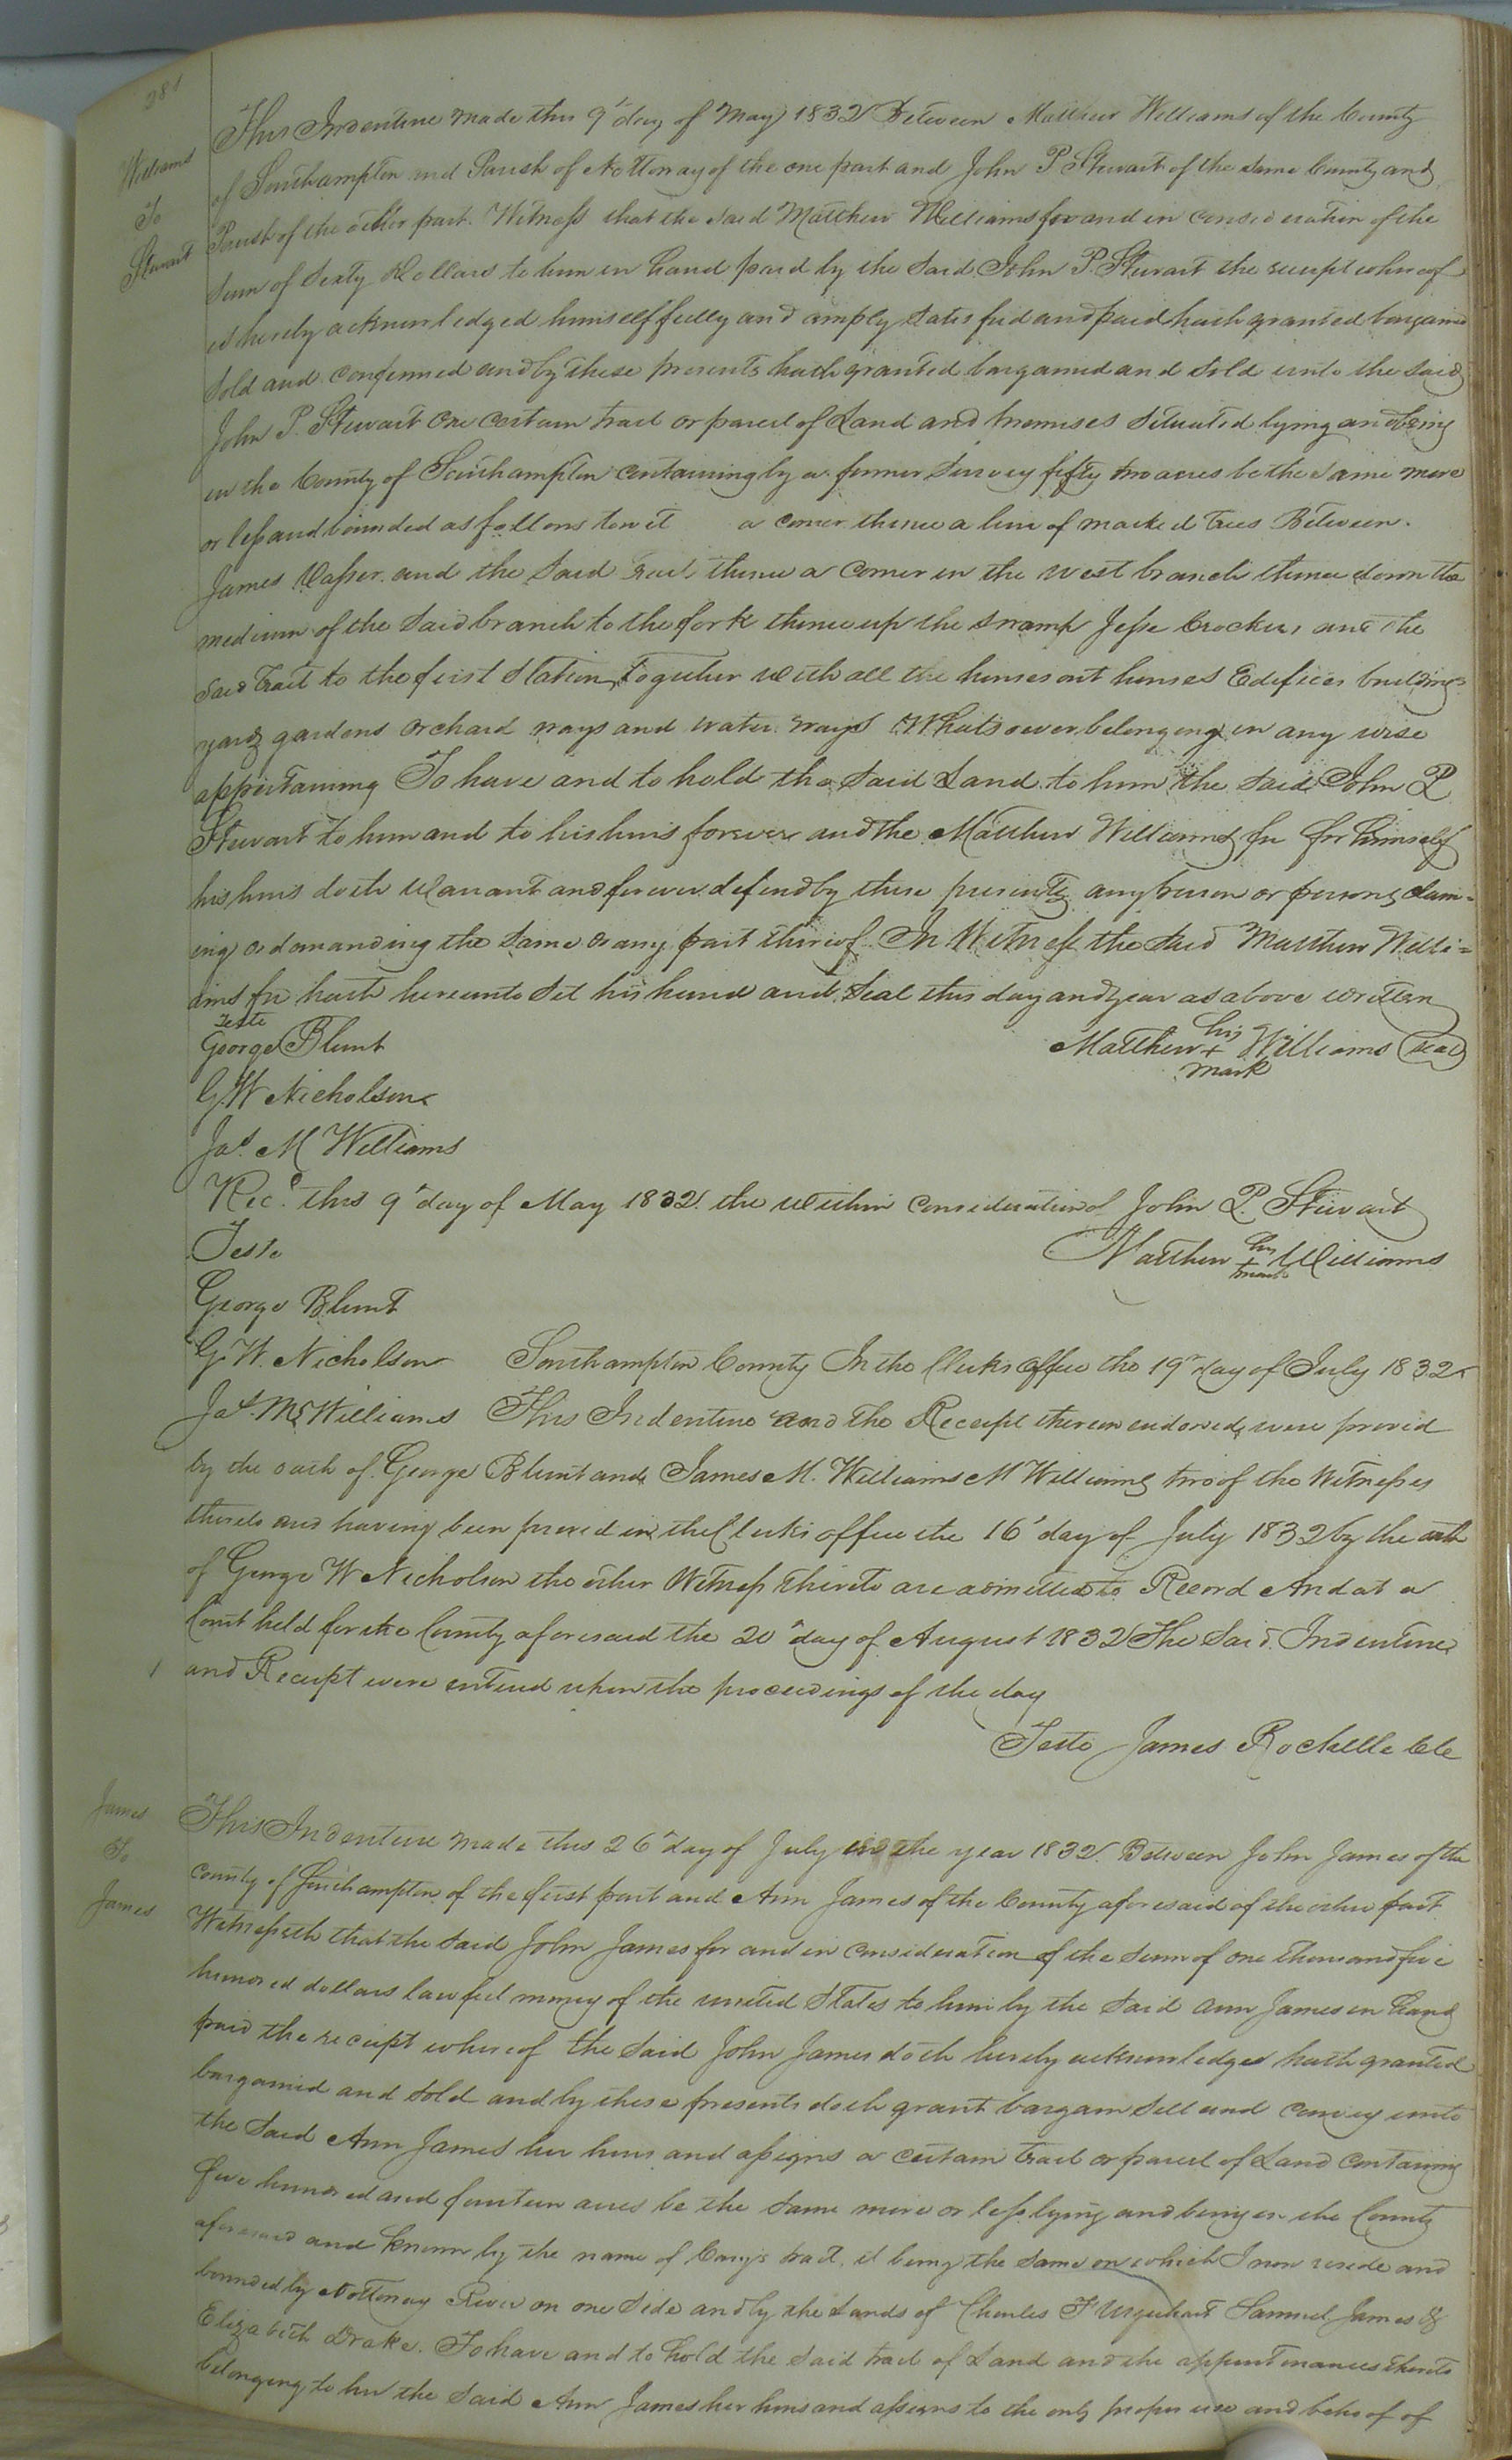 281
Williams
To
Stewart
This Indenture made this 9th day of May 1832 Between Matthew Williams of the County
of Southampton and Parish of Nottoway of the one part and John P Stewart of the same County and
Parish of the other part. Witness that the said Matthew Williams for and in consideration of the
sum of Sixty Dollars to him in hand paid by the said John P. Stewart the receipt whereof
is hereby acknowledged himself fully and amply satisfied and paid hath granted bargained
sold and confirmed and by these presents hath granted bargained and sold unto the said
John P. Stewart One certain tract or parcel of Land and premises situated lying and being
in the County of Southampton containing by a former survey fifty two acres be the same more
or less and bounded as follows towit a corner thence a line of marked trees Between
James Vasser and the said tract thence a corner in the west branch thence down the
medium of the said branch to the fork thence up the swamp Jesse Crockers and the
said tract to the first Station together with all the houses out houses Edifices buildings
yards gardens orchard ways and water ways Whatsoever belonging in any wise
appertaining To have and to hold the said Land to him the said John P
Stewart to him and to his heirs forever and the Matthew Williams for for himself
his heirs doth Warrant and forever defend by these presents any person or persons claim=
ing or demanding the same or any part thereof In Witness the said Matthew Willi=
ams hath hereunto set his hand and seal this day and year as above written
Teste
George Blunt
Matthew his + mark Williams (seal)
G. W Nicholson
Jas. M Williams
Recd. this 9th day of May 1832 the within consideration of John P. Stewart
Teste
Matthew his + mark Williams
George Blunt
G. W. Nicholson Southampton County In the Clerks Office the 19th day of July 1832
Jas. M. Williams This Indenture and the Receipt thereon endorsed were proved
by the oath of George Blunt and James M. Williams M Williams two of the Witnesses
thereto and having been proved in the Clerks office the 16th day of July 1832 by the oath
of George W Nicholson the other Witness thereto are admitted to Record And at a
Court held for the County aforesaid the 20th day of August 1832 The Said Indenture
and Receipt were entered upon the proceedings of the day
Teste James Rochelle Clk
James
To
James
This Indenture made this 26th day of July in the year 1832. Between John James of the
county of Southampton of the first part and Ann James of the County aforesaid of the other part
Witnesseth that the said John James for and in consideration of the sum of one thousand five
hundred dollars lawful money of the united States to him by the said Ann James in hand
paid the receipt whereof the said John James doth hereby acknowledge hath granted
bargained and sold and by these presents doth grant bargain sell and convey unto
the Said Ann James her heirs and assigns a certain tract or parcel of Land containing
five hundred and fourteen acres be the same more or less lying and being in the County
aforesaid and known by the name of Cary's tract, it being the same on which I now reside and
bounded by Nottoway River on one side and by the Lands of Charles F Urquhart Samuel James &
Elizabeth Drake. To have and to hold the said tract of Land and the appurtenances thereto
belonging to her the said Ann James her heirs and assigns to the only proper use and behoof of